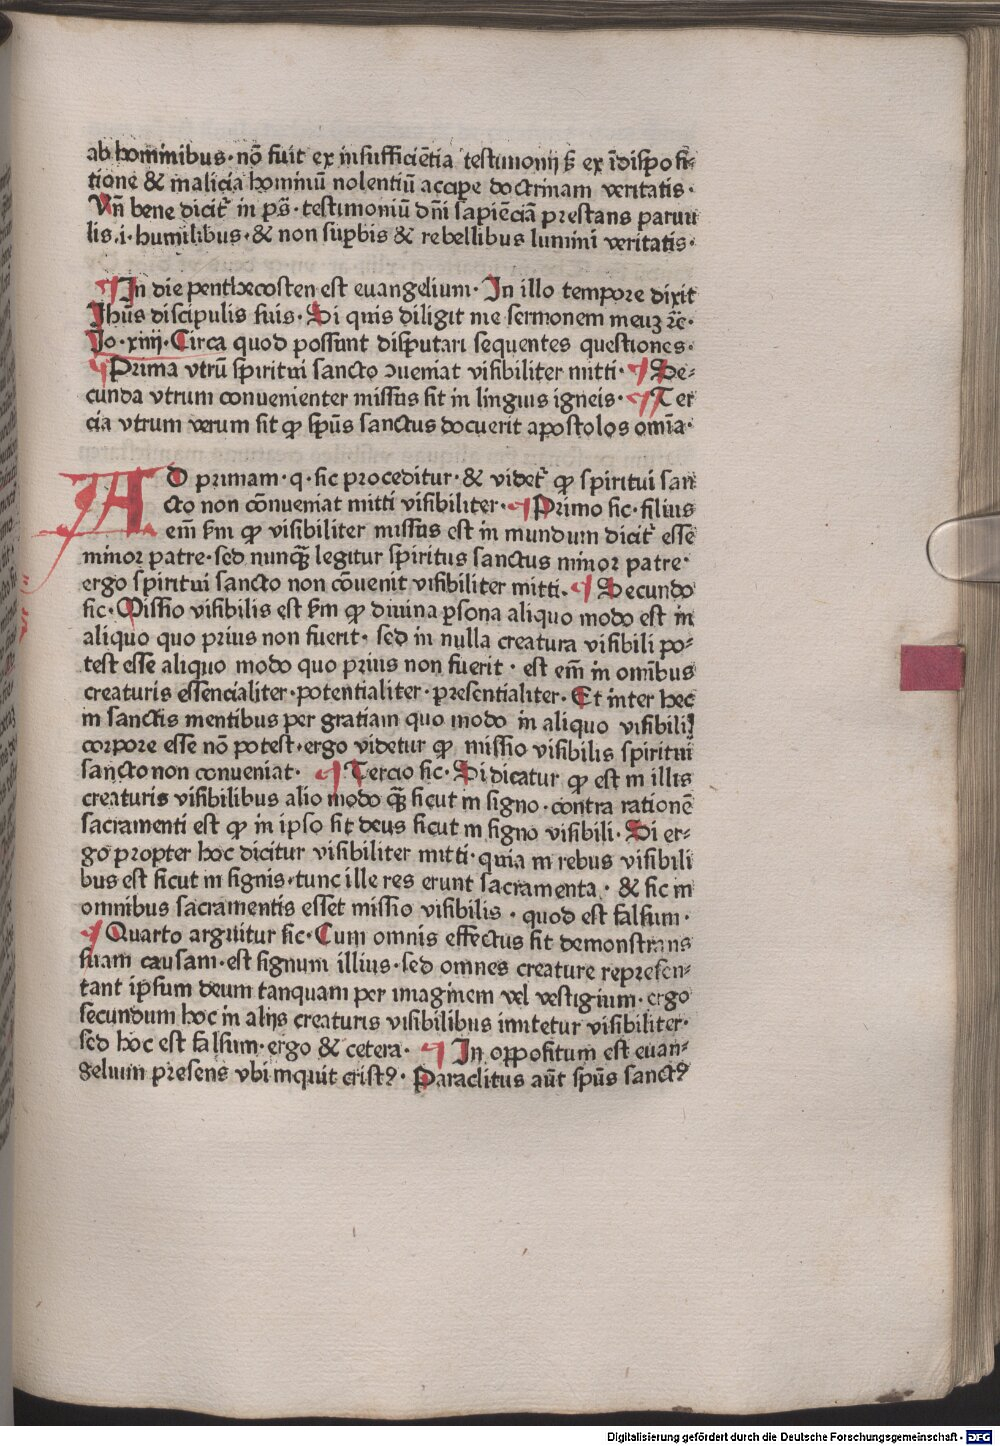 ab hominibus· nō fuit ex insufficiētia testimonij sꝫ ex īdisposi-
tione & malicia hominū nolentiū accipe doctrinam veritatis·
Vn̄ bene dicit᷑ in ps̄· testimoniū dn̄i sapiēciā prestans paruu
lis·i· humilibus· & non supbis & rebellibus lumini veritatis·
¶ In die penthecosten est euangelium· In illo tempore dixit
Jhūs discipulis suis· Si quis diligit me sermonem meuꝫ ꝛc̄·
Jo·xiiij· Circa quod possunt disputari sequentes questiones·
¶ Prima vtrū spiritui sancto ꝯueniat visibiliter mitti· ¶ Se-
cunda vtrum conuenienter missus sit in linguis igneis· ¶ Ter
cia vtrum verum sit ꝙ spūs sanctus docuerit apostolos omīa·
AD primam·q· sic proceditur· & videt᷑ ꝙ spiritui san
cto non cōueniat mitti visibiliter· ¶ Primo sic· filius
em̄ s̄m ꝙ visibiliter missus est in mundum dicit᷑ esse
minor patre· sed nunqꝫ̄ legitur spiritus sanctus minor patre·
ergo spiritui sancto non cōuenit visibiliter mitti. ¶ Secundo
sic· Missio visibilis est s̄m ꝙ diuina psona aliquo modo est in
aliquo quo prius non fuerit· sed in nulla creatura visibili po-
test esse aliquo modo quo prius non fuerit· est em̄ in omībus
creaturis essencialiter· potentialiter· presentialiter· Et inter hec
in sanctis mentibus per gratiam quo modo in aliquo visibili
corpore esse nō potest· ergo videtur ꝙ missio visibilis spiritui
sancto non conueniat· ¶ Tercio sic· Si dicatur ꝙ est in illis
creaturis visibilibus alio modo qꝫ̄ sicut in signo· contra rationē
sacramenti est ꝙ in ipso sit deus sicut in signo visibili· Si er-
go propter hoc dicitur visibiliter mitti· quia in rebus visibili
bus est sicut in signis· tunc ille res erunt sacramenta· & sic in
omnibus sacramentis esset missio visibilis· quod est falsum·
¶ Quarto arguitur sic· Cum omnis effectus sit demonstrans
suam causam· est signum illius· sed omnes creature represen-
tant ipsum deum tanquam per imaginem vel vestigium· ergo
secundum hoc in alijs creaturis visibilibus mitetur visibiliter·
sed hoc est falsum· ergo & cetera· ¶ In oppositum est euan-
gelium presens vbi inquit cristꝰ· Paraclitus aūt spūs sanctꝰ
Digitalisierung gefördert durch die Deutsche Forschungsgemeinschaft · DFG